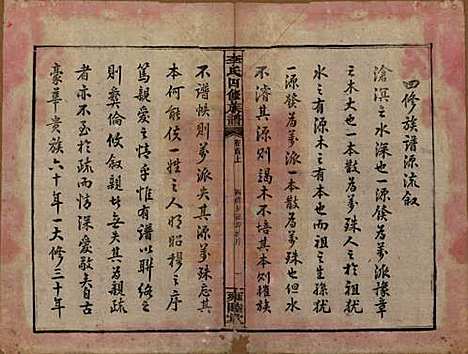 四修族譜源流叙
滄溟之水深也一源發爲萬派豫章
之木大也一本散爲萬殊人之於族
水之有源木之有根而祖之生孫犹
一源發爲萬派一本散爲萬殊也但水
不濬其源則竭木不培其本則撥族
李氏四修族譜
卷首上
敦睦堂
不譜帙則萬派失其源萬殊忘其
本何能使一姓之人明昭穆之序
篤親愛之情乎惟有譜以聯絡之
則彝倫攸叙親親此無失其爲親疏
者亦不至於疏而情深愛敬矣自古
豪華貴族六十年一大修三十年